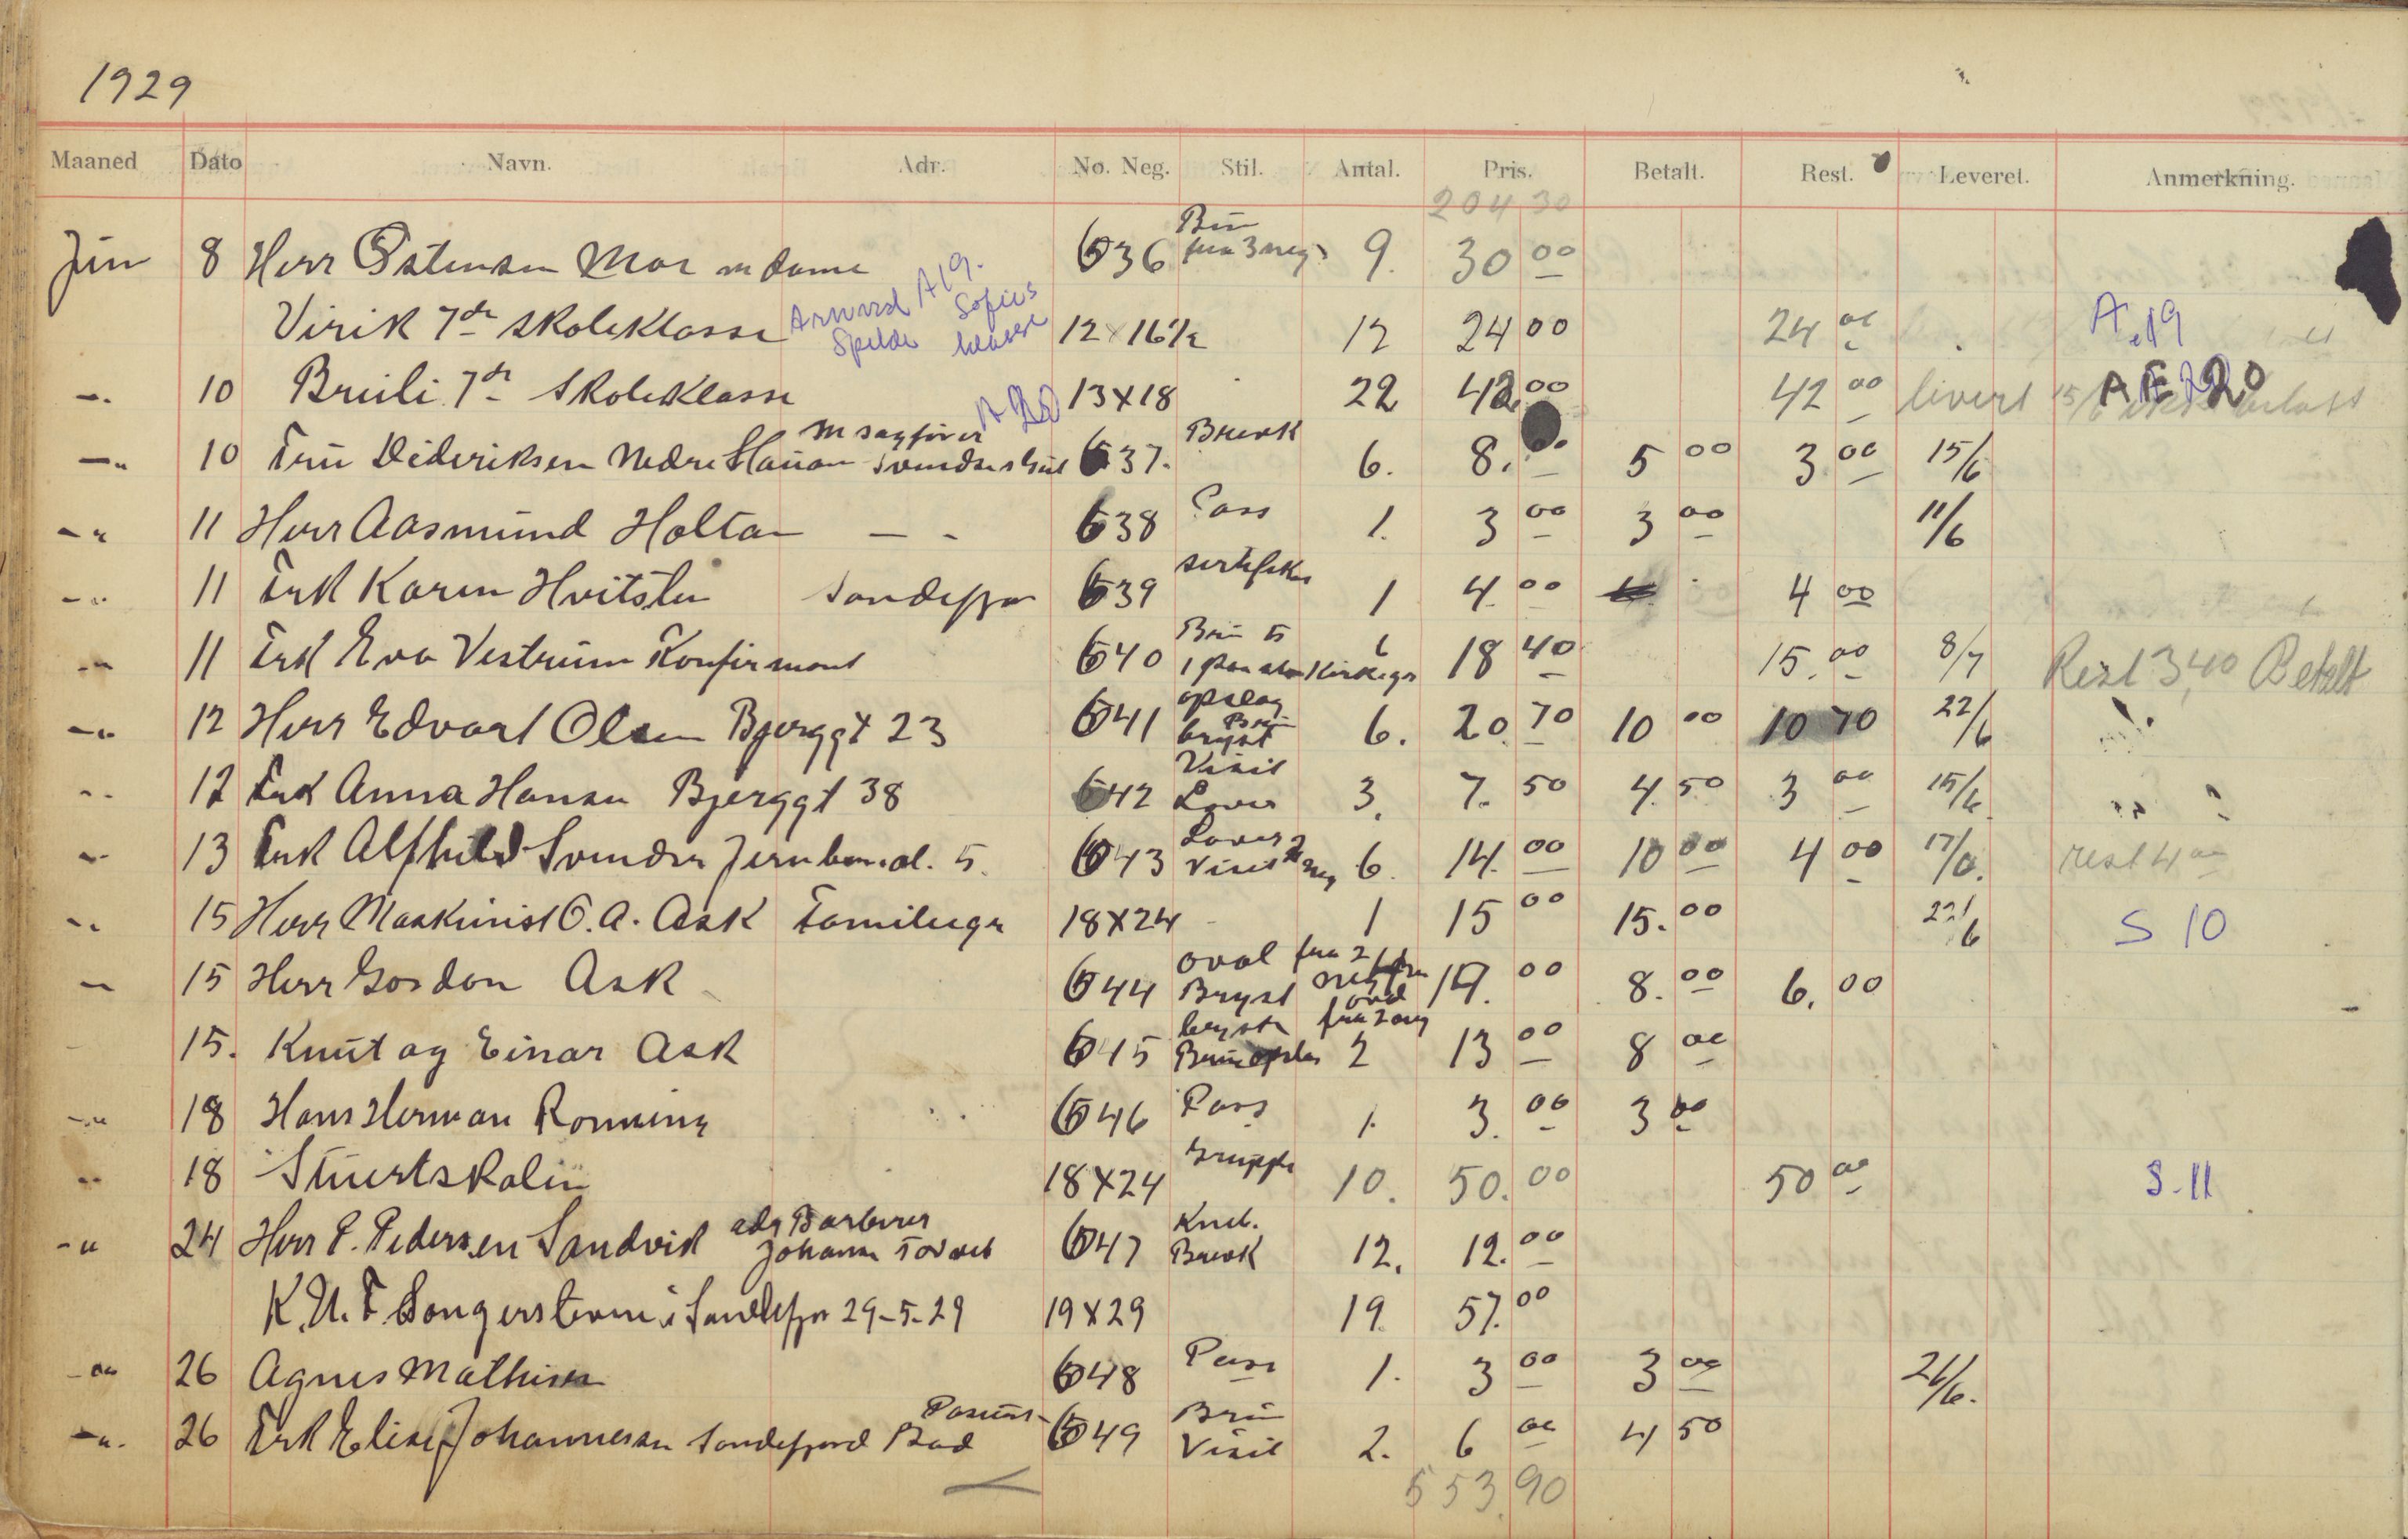 1929
Maaned Dato Navn. Adr. No. Neg. Stil. Antal. Pris. Betalt. Rest. Leveret. Anmerkning.
204 30
Jün 8 Herr Ostensen Moe m dame 636 Brün fra 3 neg 9. 30 00
Virik 7de skoleklasse A19. 12×16½ 12 24 00 24 00 A.19
10 Breili 7de Skoleklasse A20 13×18 22 42.00 42 00 livert 15/6 A E 20
10 Frü Dideriksen Nedre Hauan m sagfører 637. Brevk 6. 8.00 5 00 3 00 15/6
11 Herr Aasmünd Holtan — - 638 Pass 1. 3 00 3 00 11/6
11 Frk Karen Hvitsten Sandefjor 639 sertifikat 1 4.00 4 00
11 Frk Eva Vestrüm Konfirmant 640 Brün 5 6 18 40 15.00 8/7 Rest 3,40 Betalt
12 Herr Edvart Olsen Bjerggt 23 641 opslag Brün bryst 6. 20.70 10 00 10 70 22/6
12 Frk Anna Hansen Bjerggt 38 642 Visit Laves 3. 7.50 4.50 3 00 15/6 " "
13 Frk Alfhild Svendsen Jernban.al. 5. 643 Laves Visit 2 neg 6. 14.00 10 00 4 00 17/6. rest 4 00
15 Herr Maskinist O.A. Ask Familiegr 18×24 1 15 00 15.00 22/6 S 10
15 Herr Gordon Ask 644 oval fra 2 Bryst 14.00 8.00 6.00
15. Knüt og Einar Ask 645 bryst fra 2 neg Brün opslag 2 13 00 8 00
18 Hans Herman Ronning 646 Pass 1. 3.00 3 00
18 Stüertskolen 18×24 Grüppe 10. 50.00 50 00 S.11
24 Herr P. Pedersen Sandvik adr Barberer Johansen Torvet 647 Kneb. Brevk 12. 12.00
K.U.F. Sangerstevne i Sandefjor 29-5-29 19×29 19. 57.00
26 Agnes Mathisen 648 Pass 1. 3 00 3 00 26/6.
26 Frk Elise Johannessen Sandefjord Bad 649 Brün Visit 2. 6 00 4 50
553.90